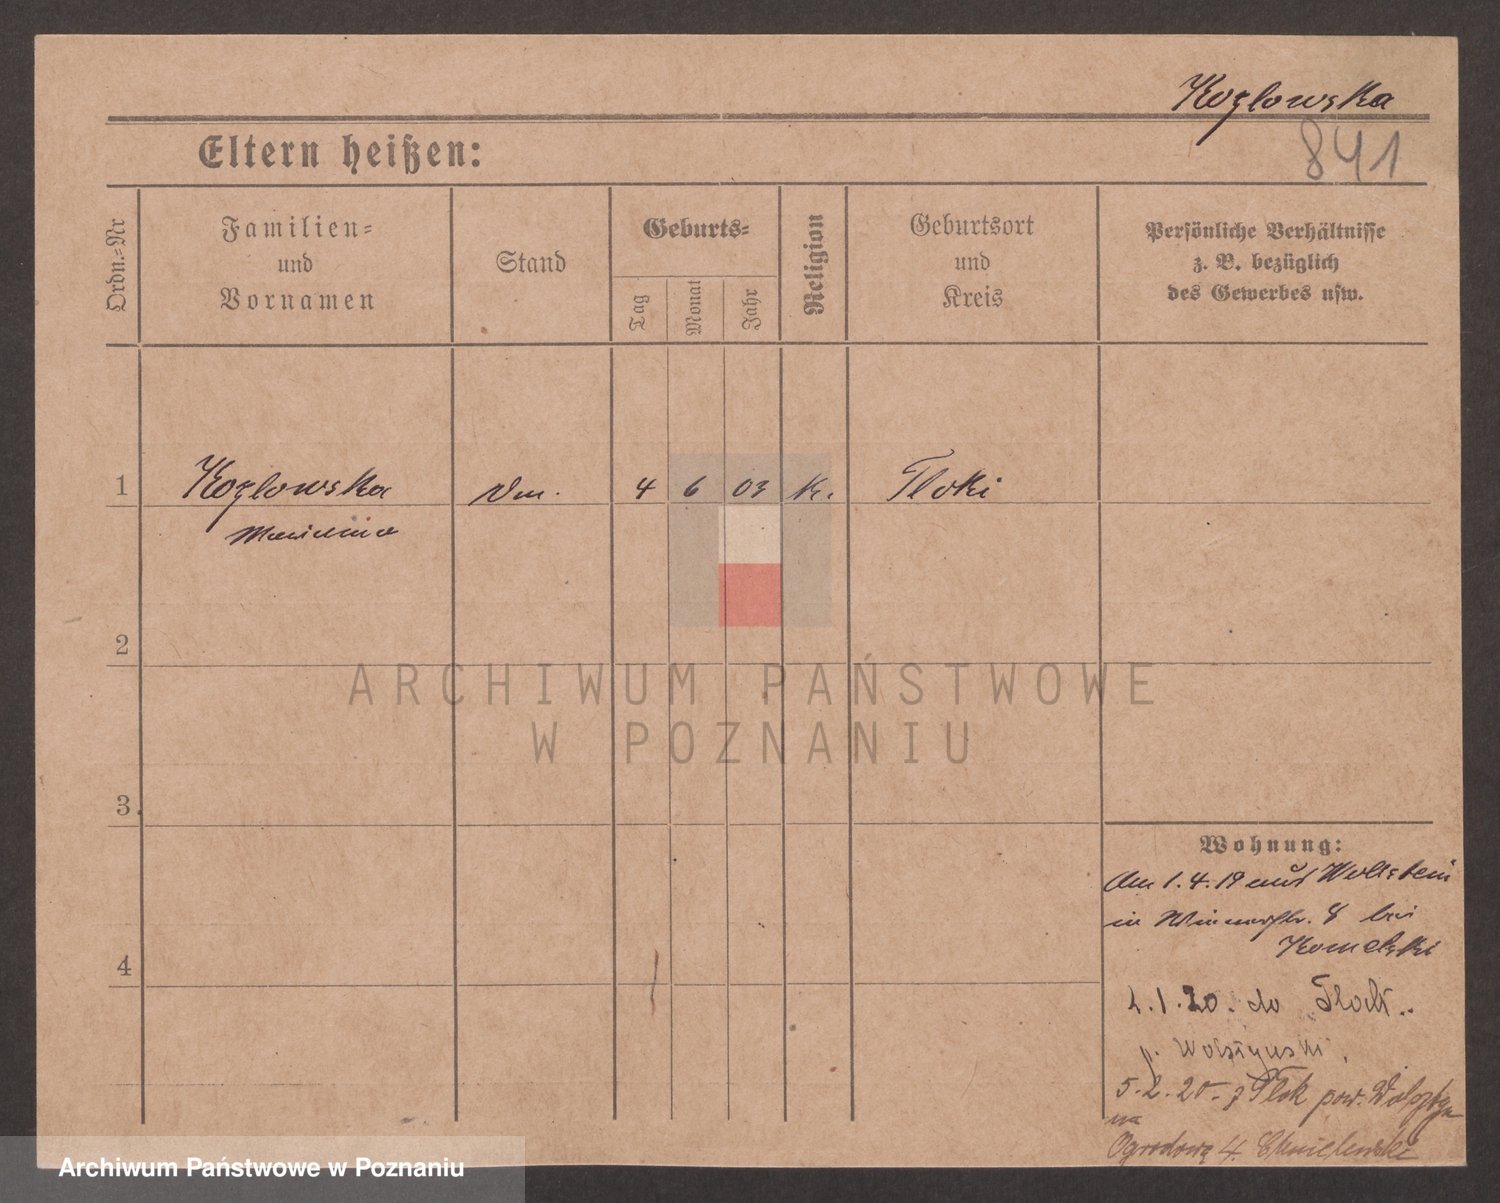 Kozlowska
841
Eltern heißen:
Ordn.-Nr
Familien-
und
Vornamen
Stand
Geburts-
Tag
Monat
Jahr
Religion
Geburtsort
und
Kreis
Persönliche Verhältnisse
z. B. bezüglich
des Gewerbes usw.
1 Kozlowska Dm. 4 6 03 K. Tloki
Marianna
2
3.
4
ARCHIWUM PAŃSTWOWE
W POZNANIU
Wohnung:
Am 1.4.19 aus Wollstein
in 8 bei
1.20. do Tloki..
p. Wolsztynski.
5.2.20 - z Tlok pow. Wolsztyn
na
Ogrodową 4. Chmielewski
Archiwum Państwowe w Poznaniu